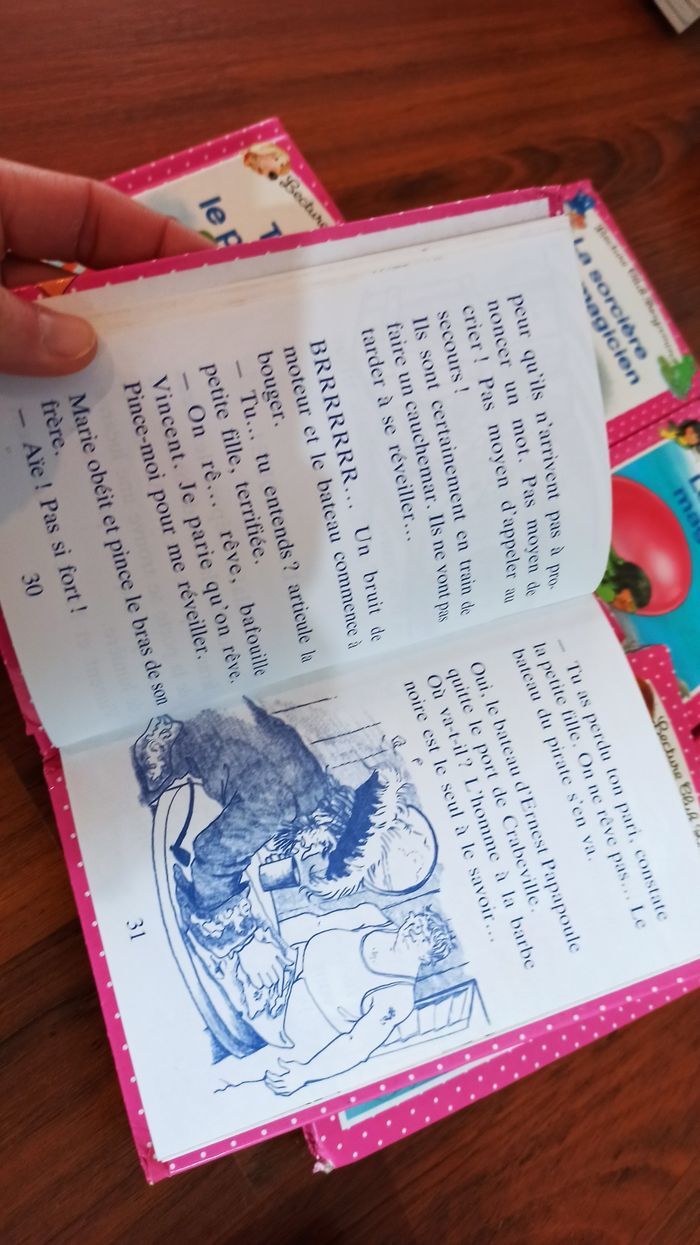 peur qu'ils n'arrivent pas à pro-
noncer un mot. Pas moyen de
crier ! Pas moyen d'appeler au
secours !
Ils sont certainement en train de
faire un cauchemar. Ils ne vont pas
tarder à se réveiller...
BRRRRRRR... Un bruit de
moteur et le bateau commence à
bouger.
— Tu... tu entends ? articule la
petite fille, terrifiée.
— On rê... rêve, bafouille
Vincent. Je parie qu'on rêve.
Pince-moi pour me réveiller.
Marie obéit et pince le bras de son
frère.
— Aïe ! Pas si fort !
30
— Tu as perdu ton pari, constate
la petite fille. On ne rêve pas... Le
bateau du pirate s'en va.
Oui, le bateau d'Ernest Papapoule
quitte le port de Crabeville.
Où va-t-il ? L'homme à la barbe
noire est le seul à le savoir...
31
Lecture
le
Lecture Club
La sorcière
magicien
Lecture Club